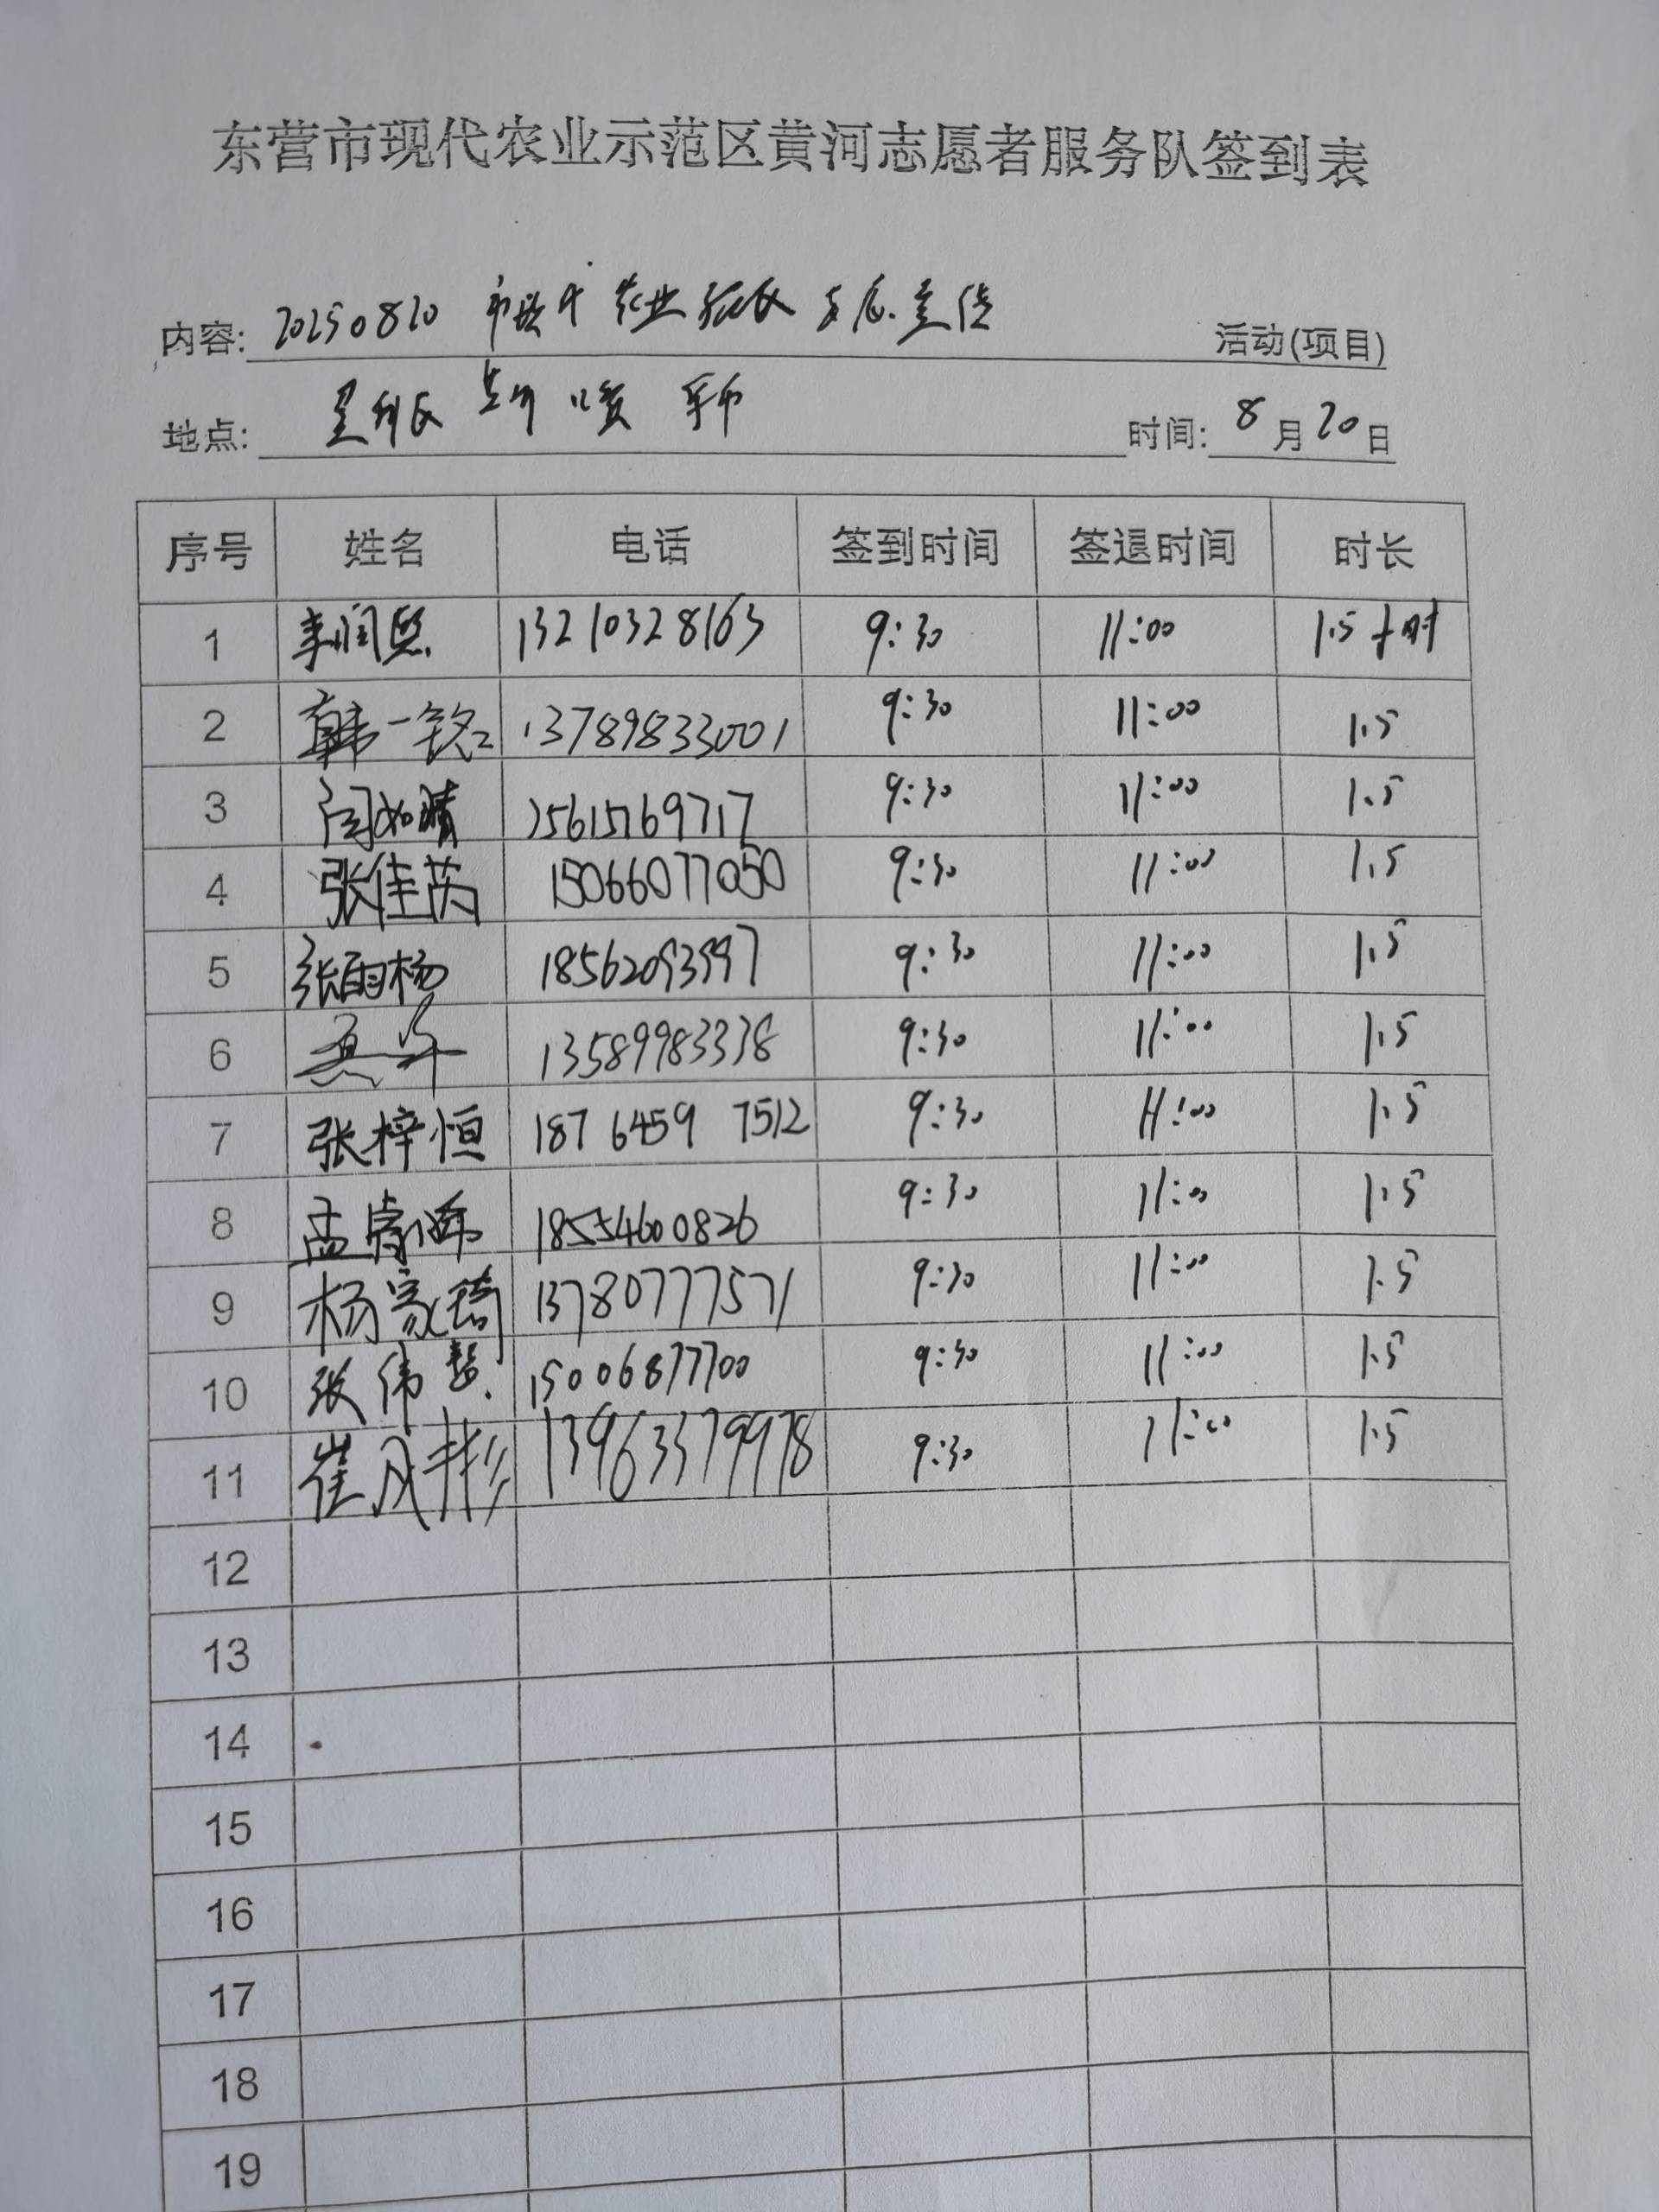 东营市现代农业示范区黄河志愿者服务队签到表
内容: 20250820 农业 宣传 活动(项目)
地点: 时间: 8月20日
序号 姓名 电话 签到时间 签退时间 时长
1 李润熙 13210328163 9:30 11:00 1.5小时
2 韩一铭 13789833001 9:30 11:00 1.5
3 闫如晴 15615769717 9:30 11:00 1.5
4 张佳茵 15066077050 9:30 11:00 1.5
5 张雨杨 9:30 11:00 1.5
6 13589983338 9:30 11:00 1.5
7 张梓恒 187 6459 7512 9:30 11:00 1.5
8 孟 18554600826 9:30 11:00 1.5
9 杨家琦 13780777571 9:30 11:00 1.5
10 张伟 15006877700 9:30 11:00 1.5
11 崔 13963379978 9:30 11:00 1.5
12
13
14
15
16
17
18
19